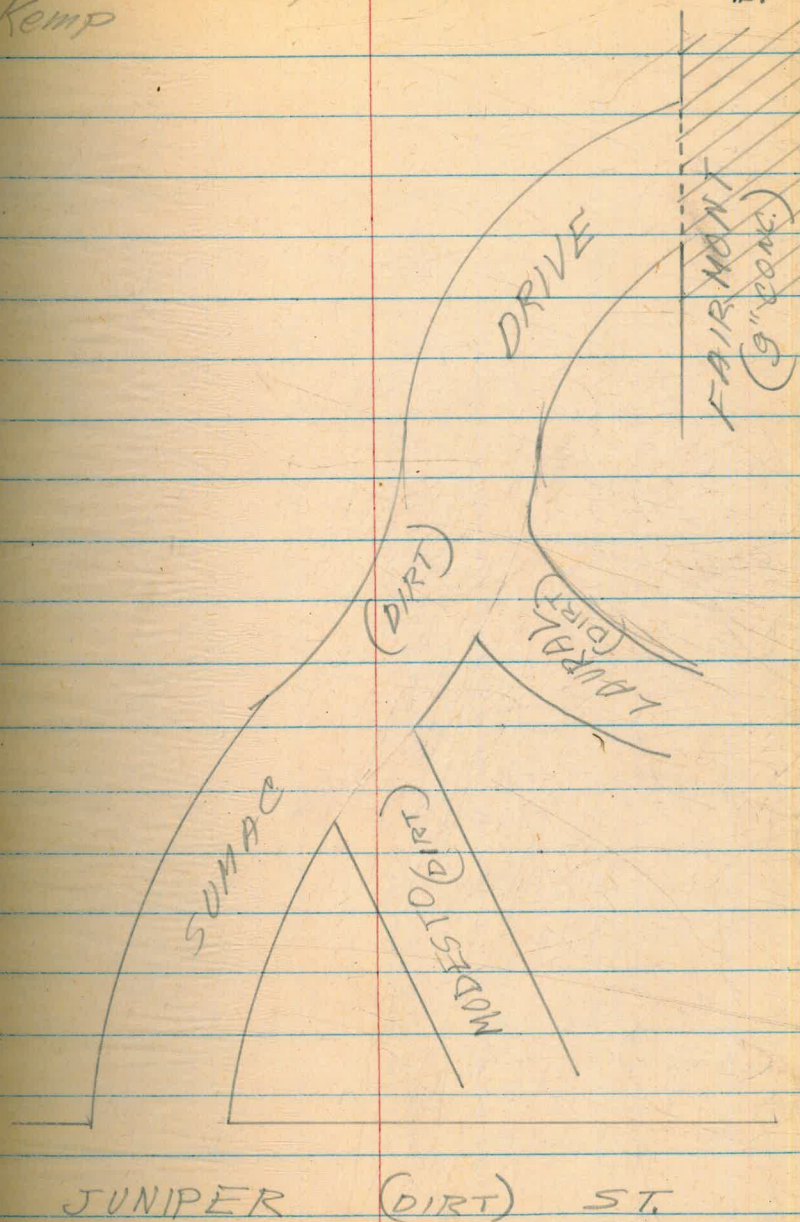 Kemp
DRIVE
FAIRMONT
(9" CONC.)
(DIRT)
LAURAL
(DIRT)
SUMAC
MODESTO (DIRT)
JUNIPER (DIRT) ST.